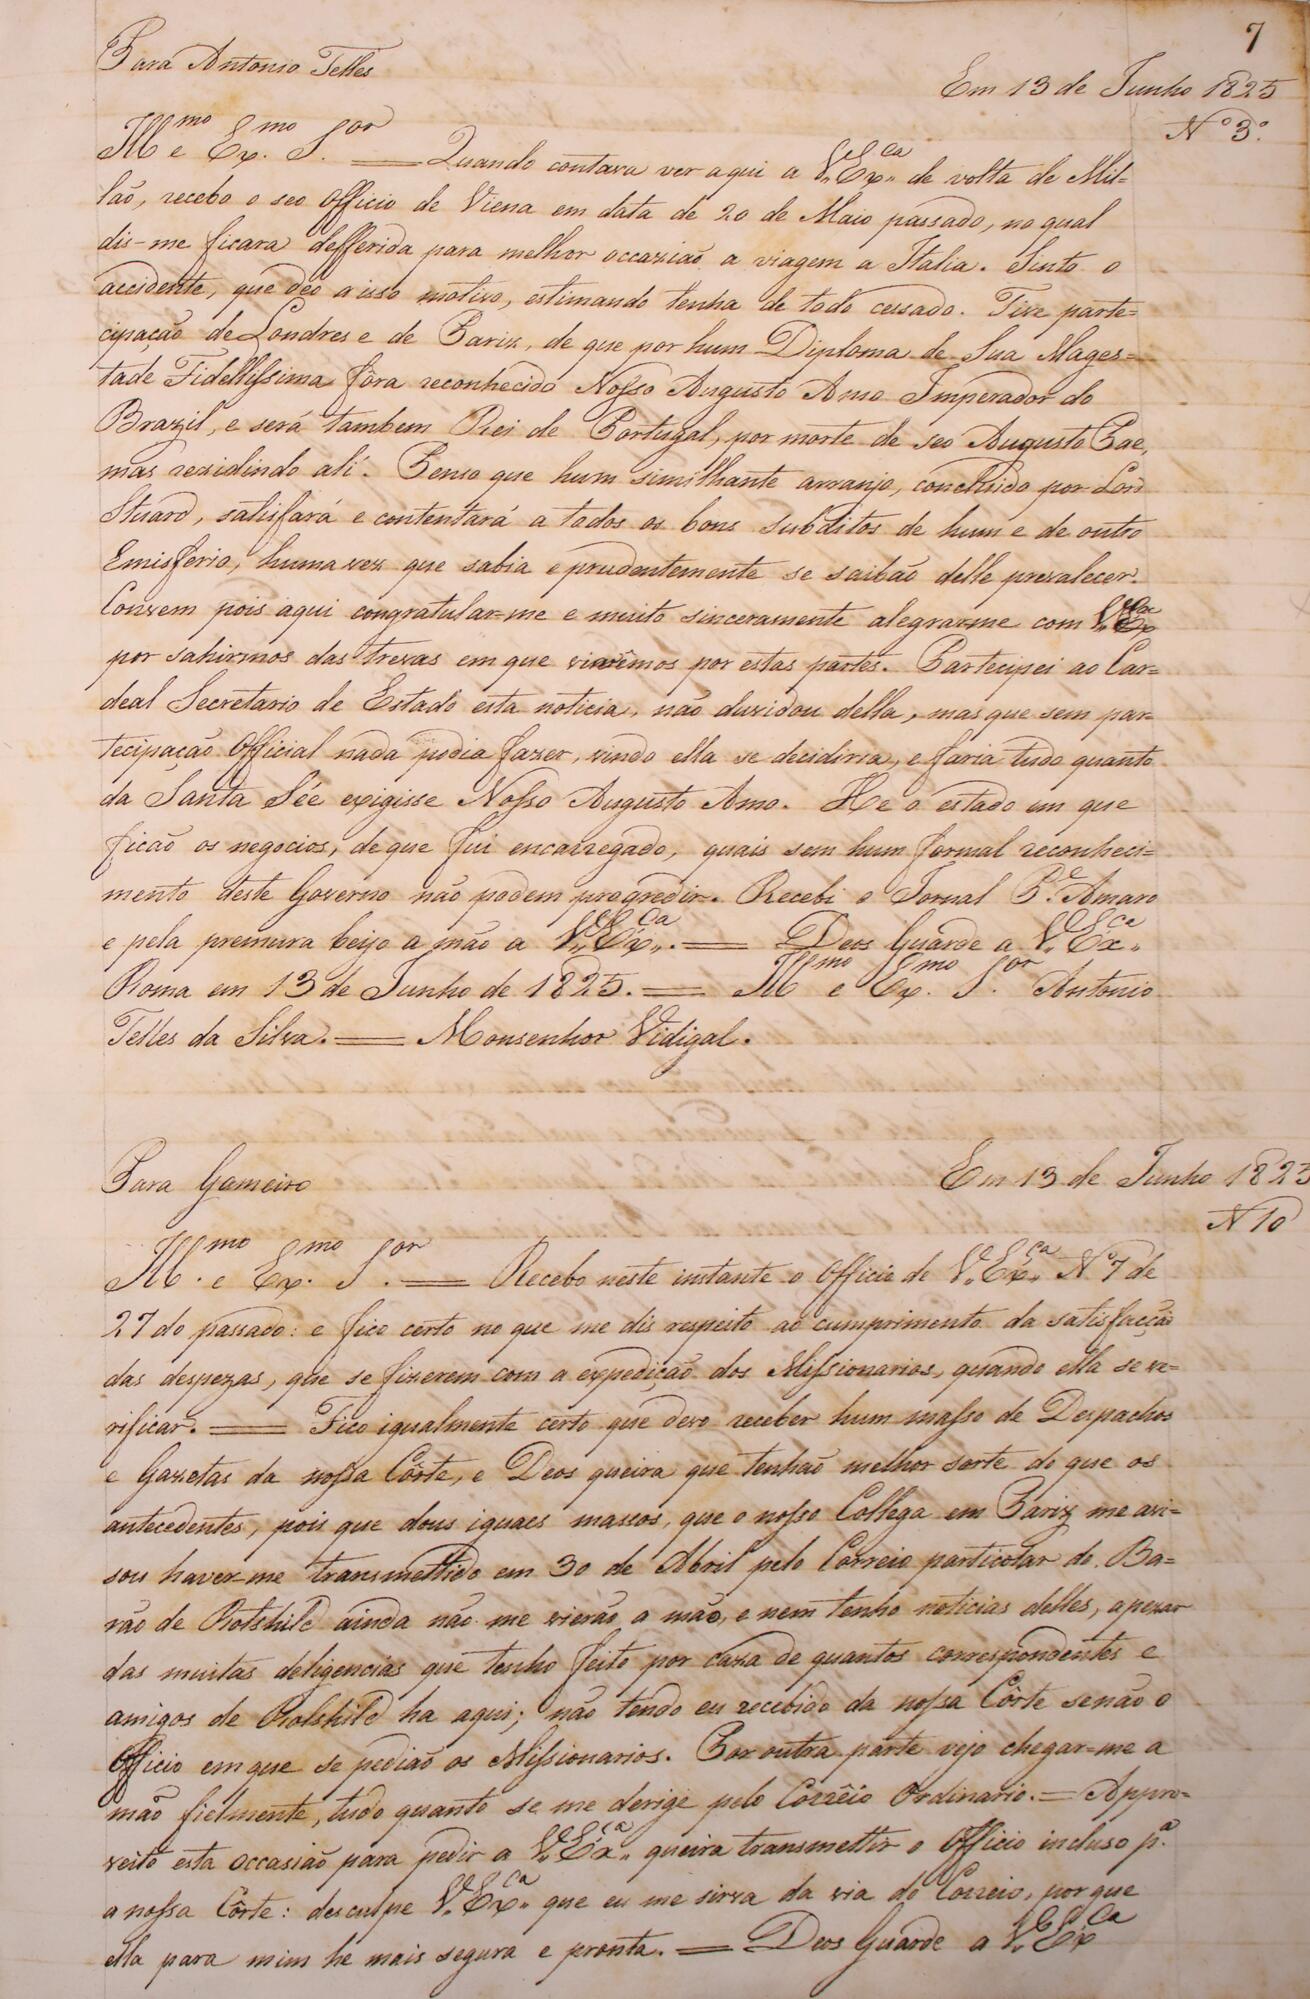 7
Para Antonio Telles
Em 13 de Junho 1825
Nº 3º
Illmo e Exmo Sor = Quando contava ver aqui a V. Exca de volta de Mil-
lão, recebo o seo Officio de Viena em data de 20 de Maio passado, no qual
dis-me ficara defferida para melhor occazião a viagem a Italia. Sinto o
accidente, que deo a isso motivo, estimando tenha de todo cessado. Tive parte=
cipação de Londres e de Pariz, de que por hum Diploma de Sua Mages=
tade Fidellissima fôra reconhecido Nosso Augusto Amo Imperador do
Brazil, e será tambem Rei de Portugal, por morte de seo Augusto Pae,
mas rezidindo alí. Penso que hum similhante arranjo, concluido por Lord
Stuard, satisfará e contentará a todos os bons subditos de hum e de outro
Emisferio, huma vez que sabia e prudentemente se saibão delle prevalecer.
Convem pois aqui congratular=me e muito sinceramente alegrarme com V. Exca
por sahirmos das trevas em que viviamos por estas partes. Partecipei ao Car=
deal Secretario de Estado esta noticia, não duvidou della, mas que sem par=
tecipação Official nada podia fazer, vindo ella se decidiria, e faria tudo quanto
da Santa Sée exigisse Nosso Augusto Amo. He o estado em que
ficão os negocios, de que fui encarregado, quais sem hum formal reconheci=
mento deste Governo não podem progredir. Recebi o Jornal Pe. Amaro
e pela premura beijo a mão a V. Exca. = Deos Guarde a V. Exca.
Roma em 13 de Junho de 1825. = Illmo e Exmo Sor Antonio
Telles da Silva. = Monsenhor Vidigal.
Para Gameiro
Em 13 de Junho 1825
N 10
Illmo. e Exmo. Sor. = Recebo neste instante o Officio de V. Exca. Nº 7 de
27 do passado: e fico certo no que me dis respeito ao cumprimento da satisfacção
das despezas, que se fizerem com a expedição dos Missionarios, quando ella se ve=
rificar. = Fico igualmente certo que devo receber hum masso de Despachos
e Gazetas da nossa Côrte, e Deos queira que tenhão melhor sorte do que os
antecedentes, pois que dous iguaes massos, que o nosso Collega em Pariz me avi=
sou haver-me transmettido em 30 de Abril pelo Correio particolar do Ba=
rão de Rotshild ainda não me vierão a mão, e nem tenho noticias delles, apezar
das muitas deligencias que tenho feito por caza de quantos correspondentes e
amigos de Rotshild ha aqui; não tendo eu recebido da nossa Côrte senão o
Officio em que se pedião os Missionarios. Por outra parte vejo chegar=me a
mão fielmente, tudo quanto se me derige pelo Corrêio Ordinario. = Appro=
veito esta occasião para pedir a V. Exca. queira transmettir o Officio incluso pa.
a nossa Côrte: desculpe V. Exca. que eu me sirva da via do Correio, por que
ella para mim he mais segura e pronta. = Deos Guarde a V. Exca